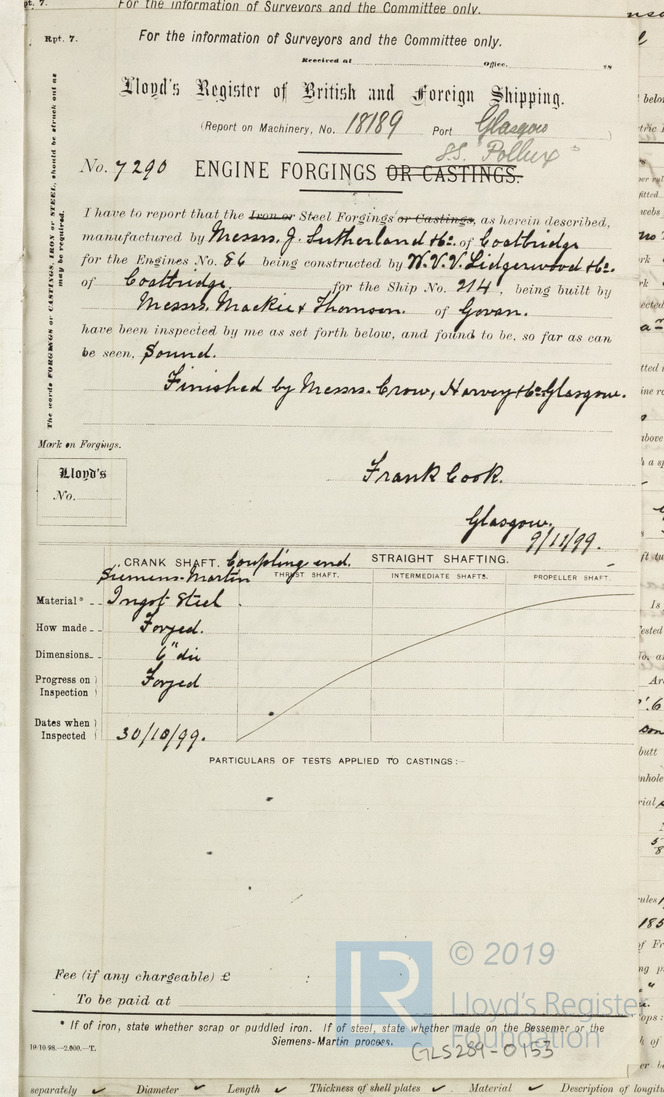 For the information of Surveyors and the Committee only.
Rpt. 7.
For the information of Surveyors and the Committee only.
Received at Office. 18
Lloyd's Register of British and Foreign Shipping.
(Report on Machinery, No. 18189 Port Glasgow)
S.S. Pollux
No. 7290 ENGINE FORGINGS OR CASTINGS.
The words FORGINGS or CASTINGS, IRON or STEEL, should be struck out as may be required.
I have to report that the Iron or Steel Forgings or Castings, as herein described,
manufactured by Messrs. J. Sutherland & Co. of Coatbridge
for the Engines No. 86 being constructed by W. V. V. Lidgerwood & Co.
of Coatbridge, for the Ship No. 214, being built by
Messrs. Mackie & Thomson. of Govan.
have been inspected by me as set forth below, and found to be, so far as can
be seen, Sound.
Finished by Messrs. Crow, Harvey & Co. Glasgow.
Mark on Forgings.
Lloyd's
No.
Frank Cook.
Glasgow.
9/12/99.
CRANK SHAFT. Coupling end. STRAIGHT SHAFTING.
THRUST SHAFT. INTERMEDIATE SHAFTS. PROPELLER SHAFT.
Siemens-Martin
Material* Ingot Steel
How made Forged.
Dimensions 6" dia
Progress on Inspection Forged
Dates when Inspected 30/10/99.
PARTICULARS OF TESTS APPLIED TO CASTINGS:—
Fee (if any chargeable) £ :
To be paid at
* If of iron, state whether scrap or puddled iron. If of steel, state whether made on the Bessemer or the
Siemens-Martin process.
19.10.98.—2,500.—T.
GLS289-0153
© 2019
Lloyd's Register
Foundation
separately Diameter Length Thickness of shell plates Material Description of